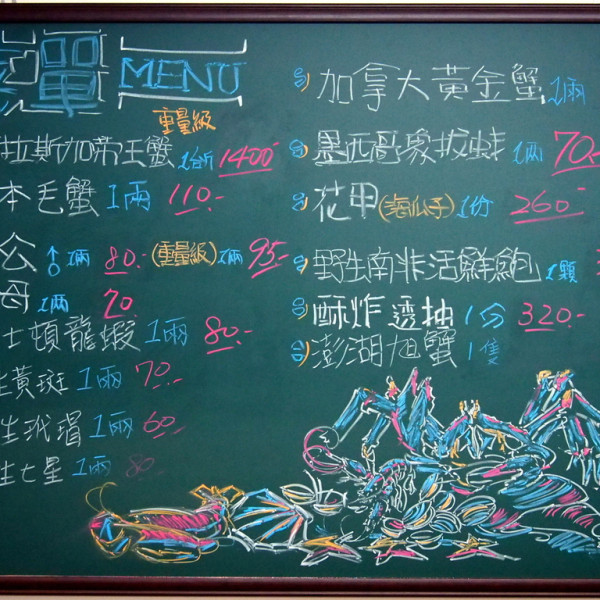 彈 MENU
重量級
拉斯加帝王蟹 1台斤 1400
本毛蟹 1兩 110.-
公 1兩 80.- (重量級) 1兩 95.-
母 1兩 70.
士頓龍蝦 1兩 80.-
黃斑 1兩 70.-
生玳瑁 1兩 60.-
生七星 1兩 80.-
加拿大黃金蟹 1兩
墨西哥象拔蚌 1兩 70.-
花甲 1份 260.-
野生南非活鮮鮑 1顆
酥炸透抽 1分 320.-
澎湖旭蟹 1隻